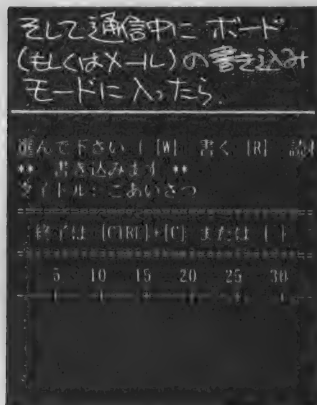 そして通信中に ボード
(もしくはメール)の書き込み
モードに入ったら.
選んで下さい ( [W] 書く [R] 読
** 書き込みます **
タイトル: ごあいさつ
終了は [CTRL]+[C] または [ ]
5 10 15 20 25 30